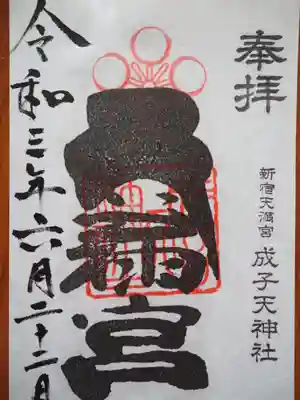 奉拝
新宿天満宮 成子天神社
宮
令和三年六月二十二日